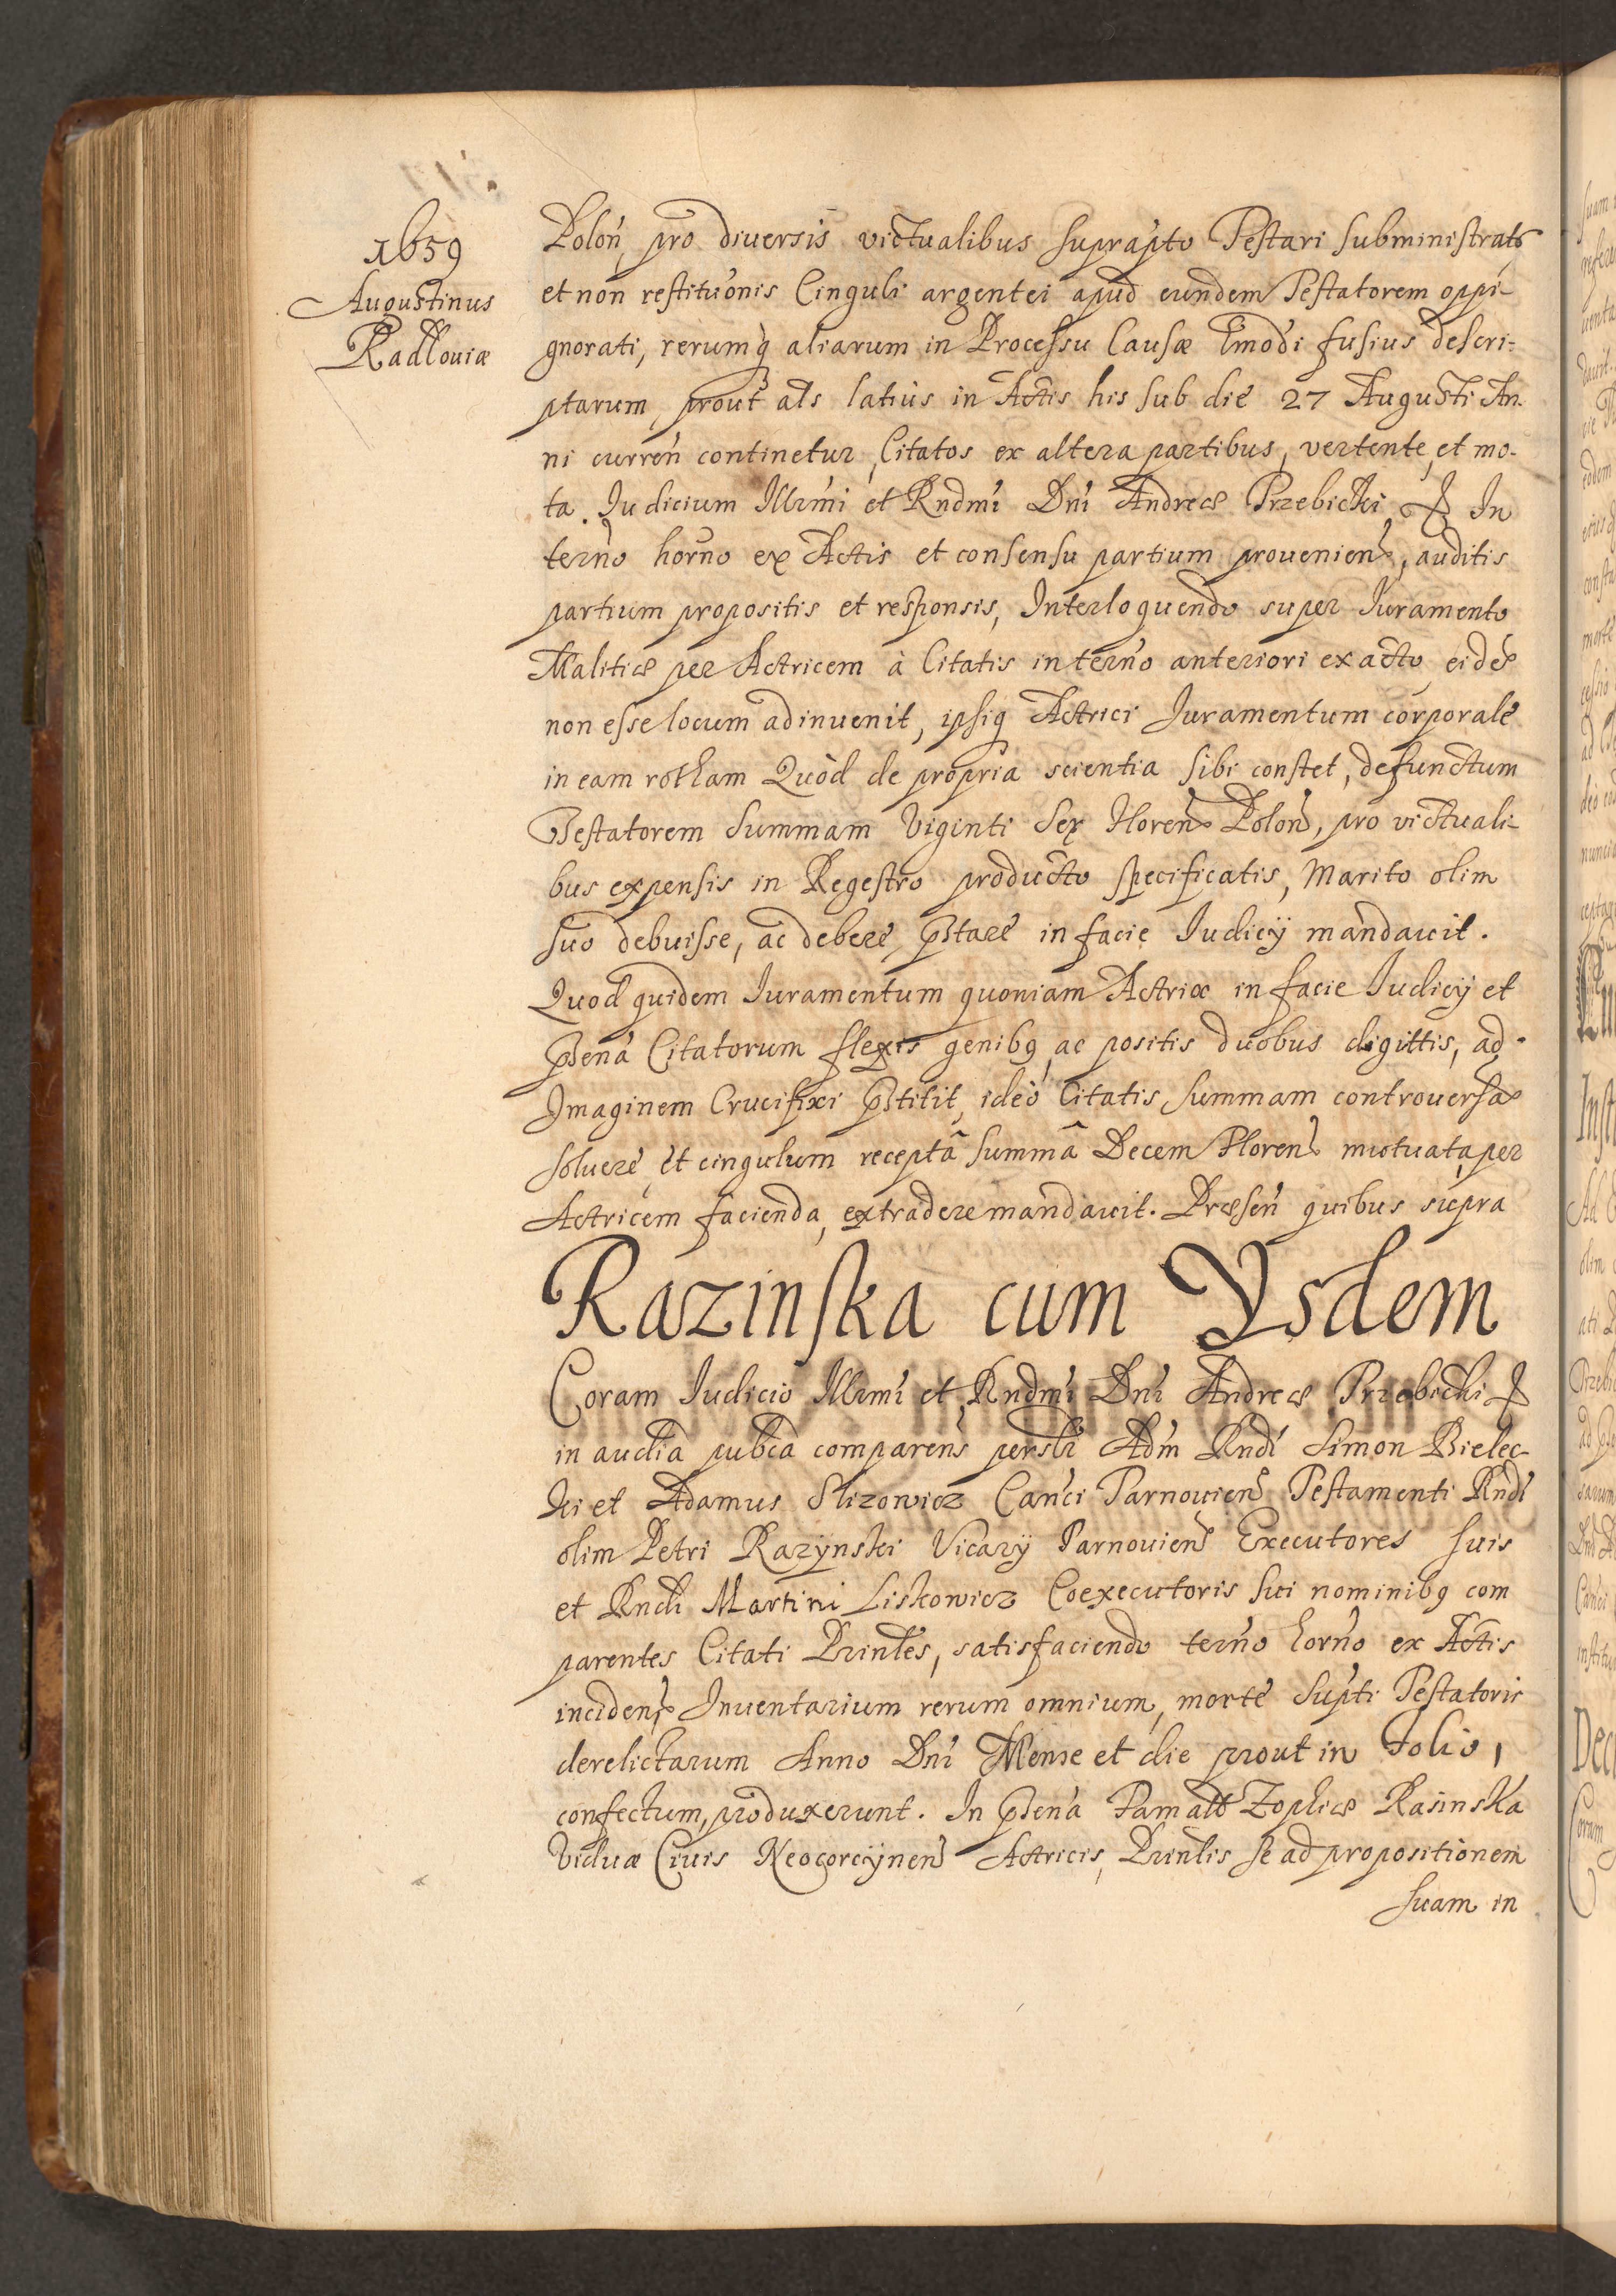 1659
Augustinus
Radlouiæ
Polon̄, pro diuersis victualibus suprapto Testari subministrat
et non restituōnis Cinguli argentei apud eundem Testatorem oppi-
gnorati, rerumq̨ aliarum in Processu Causæ Emōdi fusius descri-
ptarum, prout als latius in Actis his sub die 27 Augusti An-
ni curren̄ continetur, Citatos ex altera partibus, vertente, et mo-
ta. Iudicium Illrmi et Rndmi Dni Andreæ Trzebicki, In
termo horno ex Actis et consensu partium prouenien, auditis
partium propositis et responsis, Interloquendo super Iuramento
Malitiæ per Actricem à Citatis in termo anteriori exacto, eidē
non esse locum adinuenit, ipsiq Actrici Iuramentum corporale
in eam rotham Quòd de propria scientia sibi constet, defunctum
Testatorem summam Viginti Sex Floren Polon, pro victuali-
bus expensis in Regestro producto specificatis, Marito olim
suo debuisse, ac debere, pstare in facie Iudicÿ mandauit.
Quod quidem Iuramentum quoniam Actrix in facie Iudicÿ et
psena Citatorum flexis genibq, ac positis duobus digittis, ad
Imaginem Crucifixi pstitit, ideo Citatis summam controuersā
soluere, et cingulum receptâ summâ Decem Floren mutuata, per
Actricem facienda, extradere mandauit. Præsen̄ quibus supra
Razinska cum Ysdem
Coram Iudicio Illrmi et Rndmi Dni Andreæ Trzebicki
in audia publca comparen̄s persłr Adm Rndi Simon Bielec-
ki et Adamus Slizowicz Canci Tarnouien Testamenti Rndi
olim Petri Razÿnski Vicarÿ Tarnouien Executores suis
et Rndi Martini Liskowicz Coexecutoris sui nominibq com
parentes Citati Prinles, satisfaciendo termo horno ex Actis
inciden, Inuentarium rerum omnium, morte supti Testatoris
derelictarum Anno Dni Mense et die prout in Folio,
confectum, produxerunt. In psena Famatæ Zophiæ Rasinska
Viduæ Ciuis Neocorcÿnen Actricis, Prinlis se ad propositionem
suam in